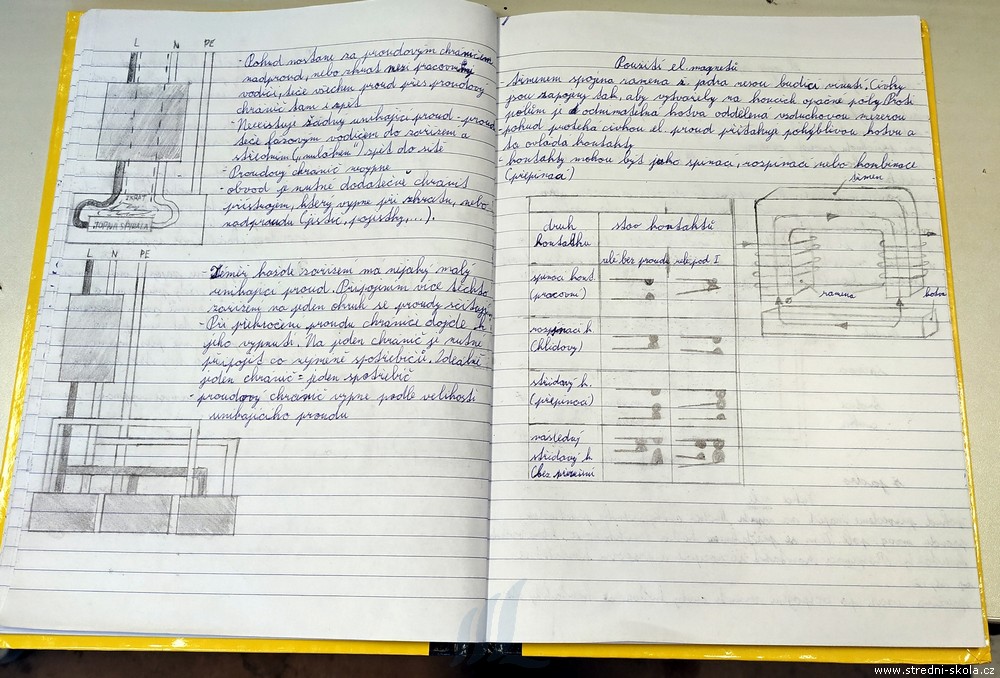 L N PE
- Pokud nastane za proudovým chráničem
nadproud, nebo zkrat mezi pracovními
vodiči, teče všechen proud přes proudový
chránič tam i zpět
- Neexistuje žádný unikající proud - proud
teče fázovým vodičem do zařízení a
středním ("nulákem") zpět do sítě
- Proudový chránič nevypne
- obvod je nutné dodatečně chránit
přístrojem, který vypne při zkratu, nebo
nadproudu (jistič, pojistky,...).
ZKRAT
TOPNÁ SPIRÁLA
L N PE
- Téměř každé zařízení má nějaký malý
unikající proud. Připojením více těchto
zařízení na jeden okruh se proudy sčítají
- Při překročení proudu chrániče dojde k
jeho vypnutí. Na jeden chránič je nutné
připojit co nejméně spotřebičů. Ideálně
jeden chránič = jeden spotřebič
- proudový chránič vypne podle velikosti
unikajícího proudu
Použití el. magnetů
třmenem spojena ramena z jádra nesou budící vinutí. Cívky
jsou zapojeny tak, aby vytvářely na koncích opačné póly. Proti
pólům je odnímatelná kotva oddělena vzduchovou mezerou
- pokud protéká cívkou el. proud přitahuje pohyblivou kotvu a
ta ovládá kontakty
- kontakty mohou být jako spínací, rozpínací nebo kombinace
(přepínací)
třmen
ramena
kotva
druh kontaktu
stav kontaktů
relé bez proudu relé pod I
spínací kont.
(pracovní)
rozpínací k.
(klidový)
střídavý k.
(přepínací)
následný
střídavý k.
(bez přerušení
www.stredni-skola.cz